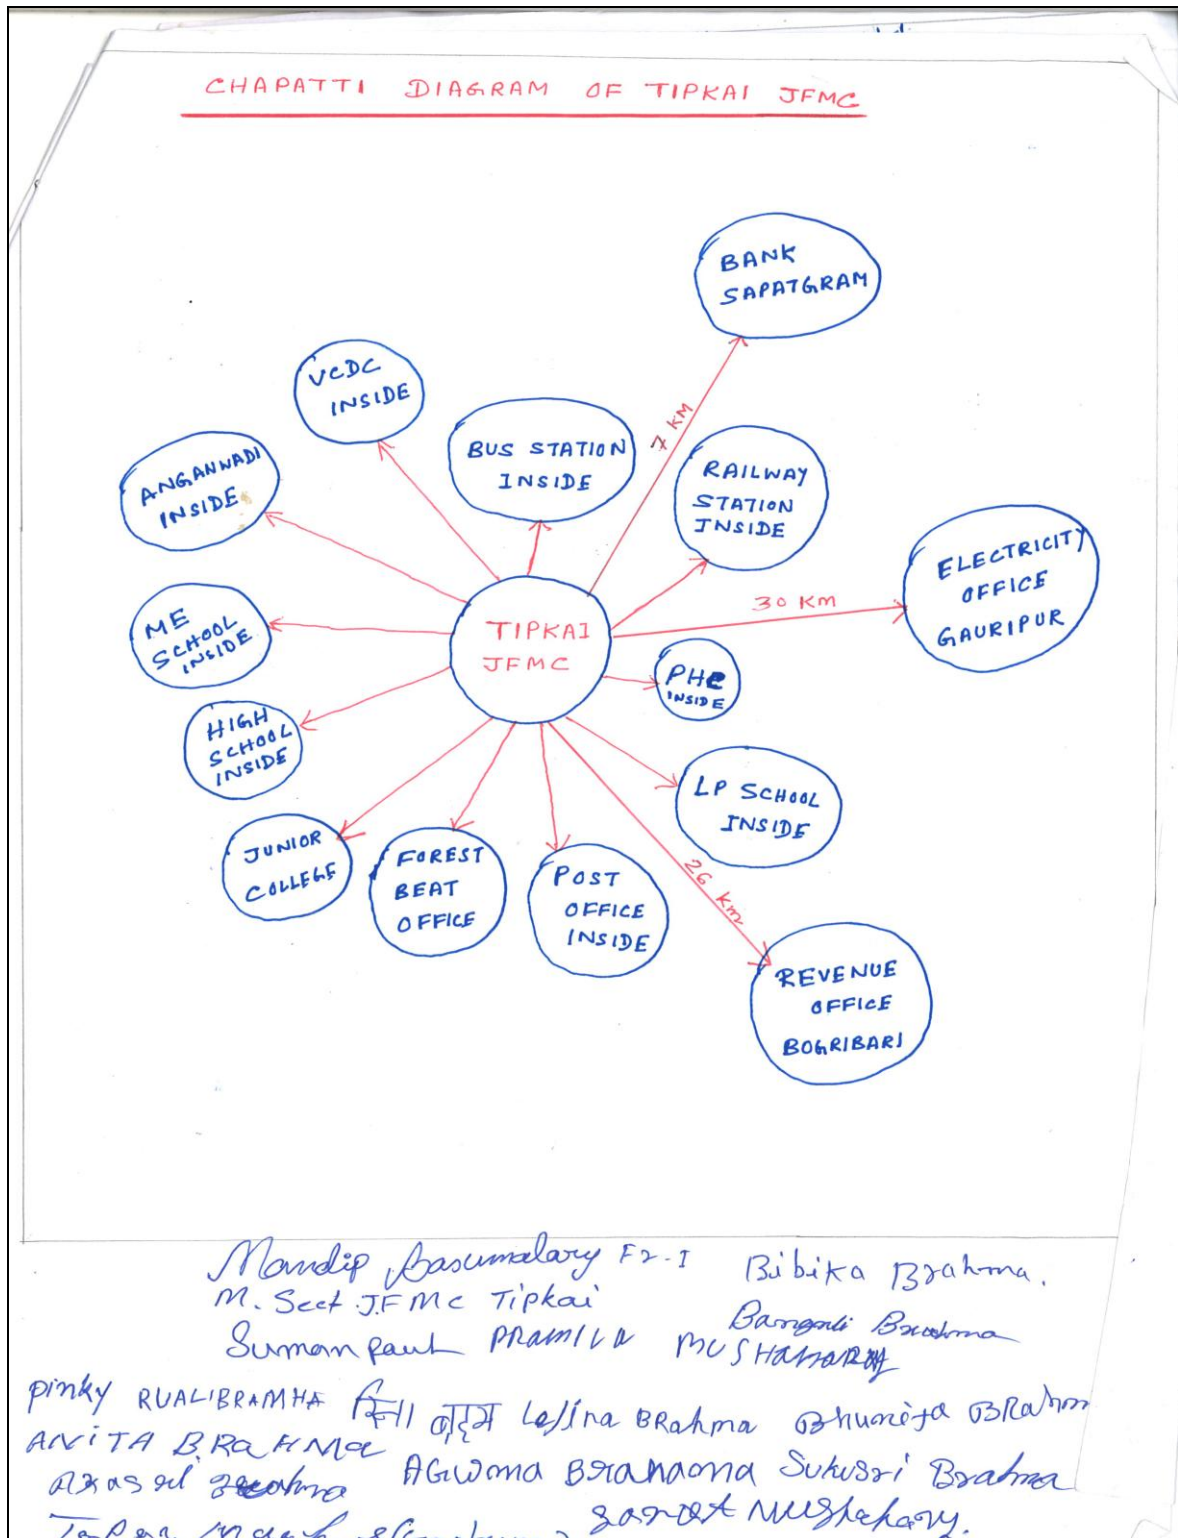 CHAPATTI DIAGRAM OF TIPKAI JFMC
BANK
SAPATGRAM
VCDC
INSIDE
BUS STATION
INSIDE
7 KM
RAILWAY
STATION
INSIDE
ANGANWADI
INSIDE
ELECTRICITY
OFFICE
GAURIPUR
30 KM
ME
SCHOOL
INSIDE
TIPKAI
JFMC
PHC
INSIDE
HIGH
SCHOOL
INSIDE
LP SCHOOL
INSIDE
JUNIOR
COLLEGE
FOREST
BEAT
OFFICE
POST
OFFICE
INSIDE
26 Km
REVENUE
OFFICE
BOGRIBARI
Mandip Basumatary Fr-I Bibika Brahma.
M. Sect JFMC Tipkai
Brahma
Suman Paul PRAMILA MUSHAHARY
Pinky RUALIBRAMHA Brahma
ANITA BRAHMA
AGWMA Sukusri Brahma